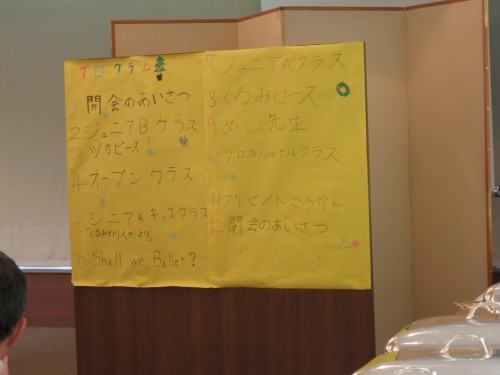 プログラム
1 開会のあいさつ
2 ジュニアB クラス
ヅカピース
4 オープン クラス
シニア & キッズクラス
「くるみわり人形」より
6 Shall we Ballet?
7 ジュニアAクラス
8 くるみピース
9 めい先生
プロフェッショナルクラス
11 プレゼントこうかん
12 閉会のあいさつ